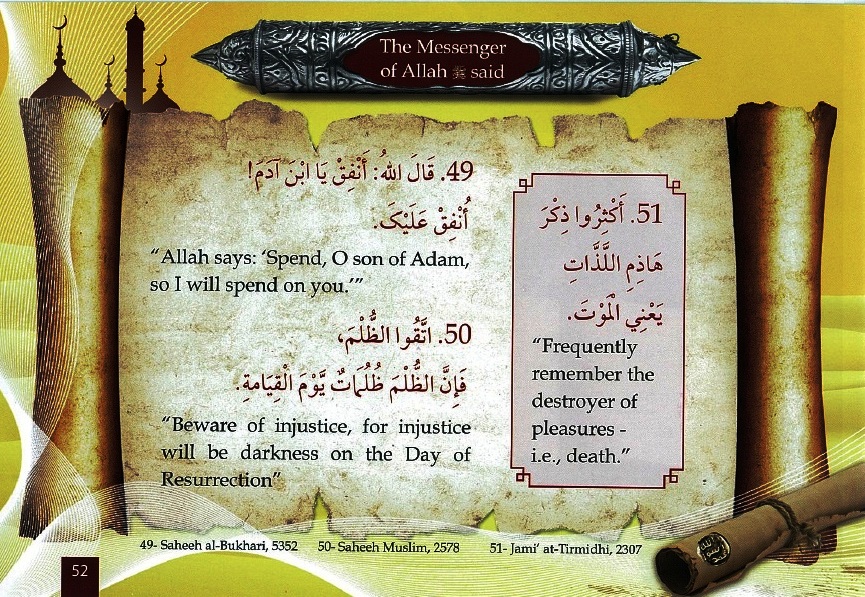 The Messenger
of Allah ﷺ said
49. قَالَ اللهُ: أَنْفِقْ يَا ابْنَ آدَمَ!
أُنْفِقْ عَلَيْكَ.
“Allah says: ‘Spend, O son of Adam,
so I will spend on you.’”
50. اتَّقُوا الظُّلْمَ،
فَإِنَّ الظُّلْمَ ظُلُمَاتٌ يَّوْمَ الْقِيَامةِ.
“Beware of injustice, for injustice
will be darkness on the Day of
Resurrection”
51. أَكْثِرُوا ذِكْرَ
هَاذِمِ اللَّذَّاتِ
يَعْنِي الْمَوْتَ.
“Frequently
remember the
destroyer of
pleasures -
i.e., death.”
49- Saheeh al-Bukhari, 5352 50- Saheeh Muslim, 2578 51- Jami’ at-Tirmidhi, 2307
الله
رسول
محمد
52